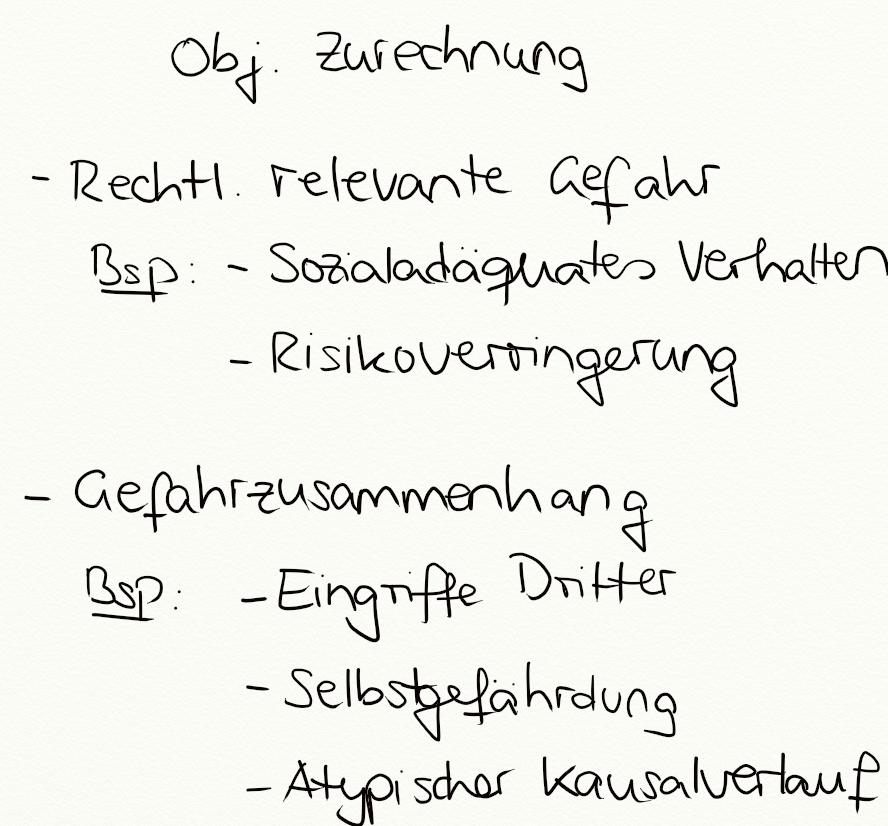 Obj. Zurechnung
- Rechtl. relevante Gefahr
Bsp: - Sozialadäquates Verhalten
- Risikoverringerung
- Gefahrzusammenhang
Bsp: - Eingriffe Dritter
- Selbstgefährdung
- Atypischer Kausalverlauf